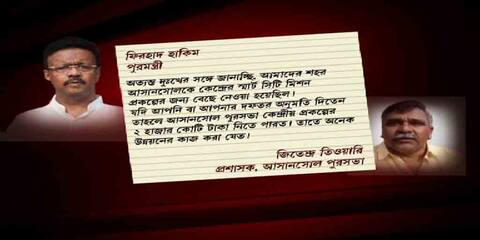 ফিরহাদ হাকিম
পুরমন্ত্রী
অত্যন্ত দুঃখের সঙ্গে জানাচ্ছি, আমাদের শহর
আসানসোলকে কেন্দ্রের স্মার্ট সিটি মিশন
প্রকল্পের জন্য বেছে নেওয়া হয়েছিল।
যদি আপনি বা আপনার দফতর অনুমতি দিতেন
তাহলে আসানসোল পুরসভা কেন্দ্রীয় প্রকল্পের
২ হাজার কোটি টাকা নিতে পারত। তাতে অনেক
উন্নয়নের কাজ করা যেত।
জিতেন্দ্র তিওয়ারি
প্রশাসক, আসানসোল পুরসভা